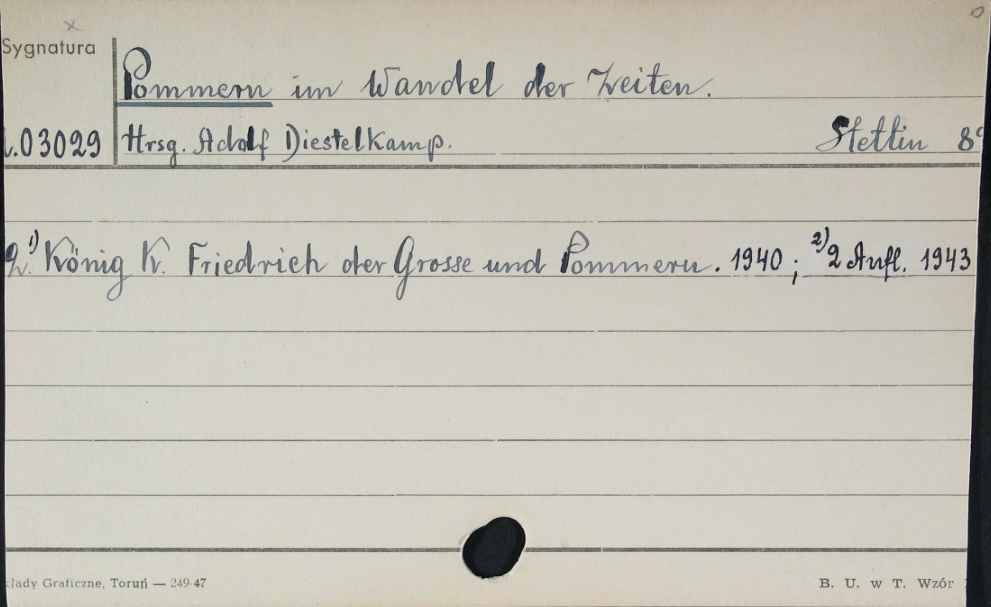 Sygnatura
Pommern im Wandel der Zeiten.
03029 Hrsg. Adolf Diestelkamp. Stettin 8°
2. 1) König K. Friedrich der Grosse und Pommern. 1940 ; 2) 2 Aufl. 1943
łady Graficzne, Toruń — 249-47 B. U. w T. Wzór